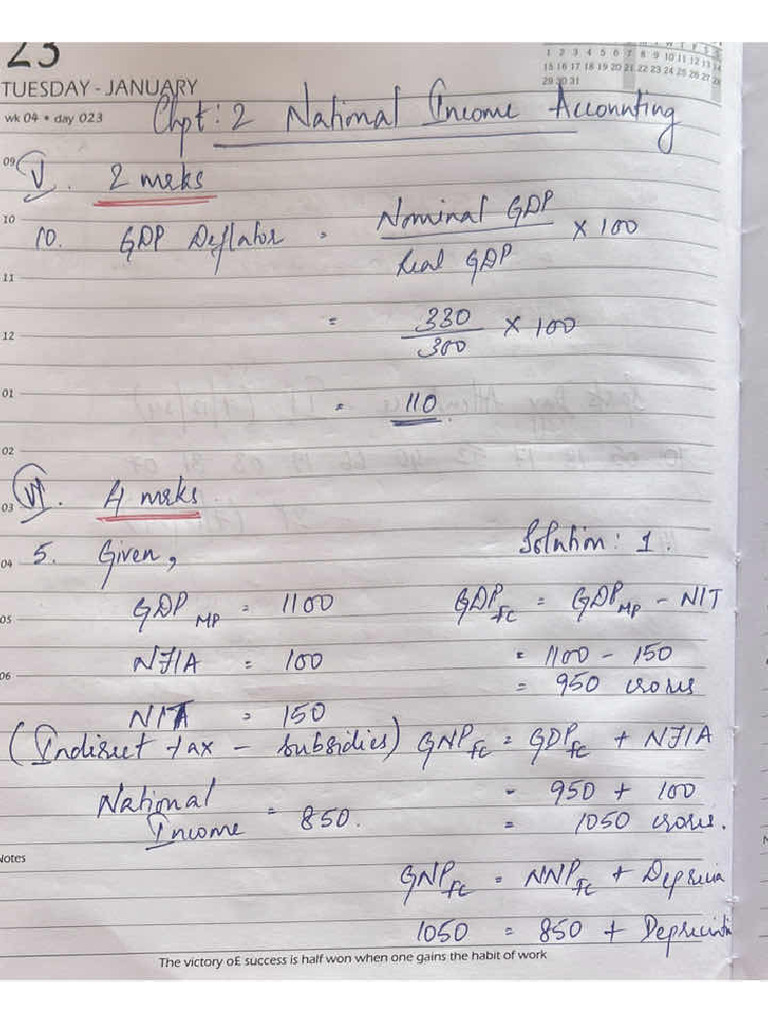 23
TUESDAY - JANUARY
wk 04 • day 023
1 2 3 4 5 6 7 8 9 10 11 12 13 14
15 16 17 18 19 20 21 22 23 24 25 26 27 28
29 30 31
Chpt: 2 National Income Accounting
09
V. 2 mrks
10
10. GDP Deflator = Nominal GDP / Real GDP × 100
11
= 330 / 300 × 100
12
01
= 110
02
03
VI. 4 mrks
04
5. Given, Solution: 1.
GDP MP = 1100 GDP FC = GDP MP - NIT
05
NFIA = 100 = 1100 - 150
06
= 950 crores
NIT = 150
(Indirect tax - subsidies) GNP FC = GDP FC + NFIA
National Income = 850. = 950 + 100
= 1050 crores.
Notes
GNP FC = NNP FC + Deprecia
1050 = 850 + Depreciati
The victory oE success is half won when one gains the habit of work